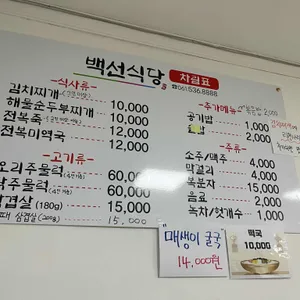 백선식당 차림표
☎061 536.8888
-식사류-
김치찌개
해물순두부찌개 10,000
전복죽 12,000
전복미역국 12,000
-고기류-
오리주물럭 60,000
주물럭 60,000
겹살 (180g) 15,000
삼겹살 (200g) 15,000
-추가메뉴-
2,000
공기밥 1,000
2,000
-주류-
소주/맥주 4,000
막걸리 4,000
복분자 15,000
음료 2,000
녹차/헛개수 1,000
"매생이 굴국"
14,000원
떡국
10,000